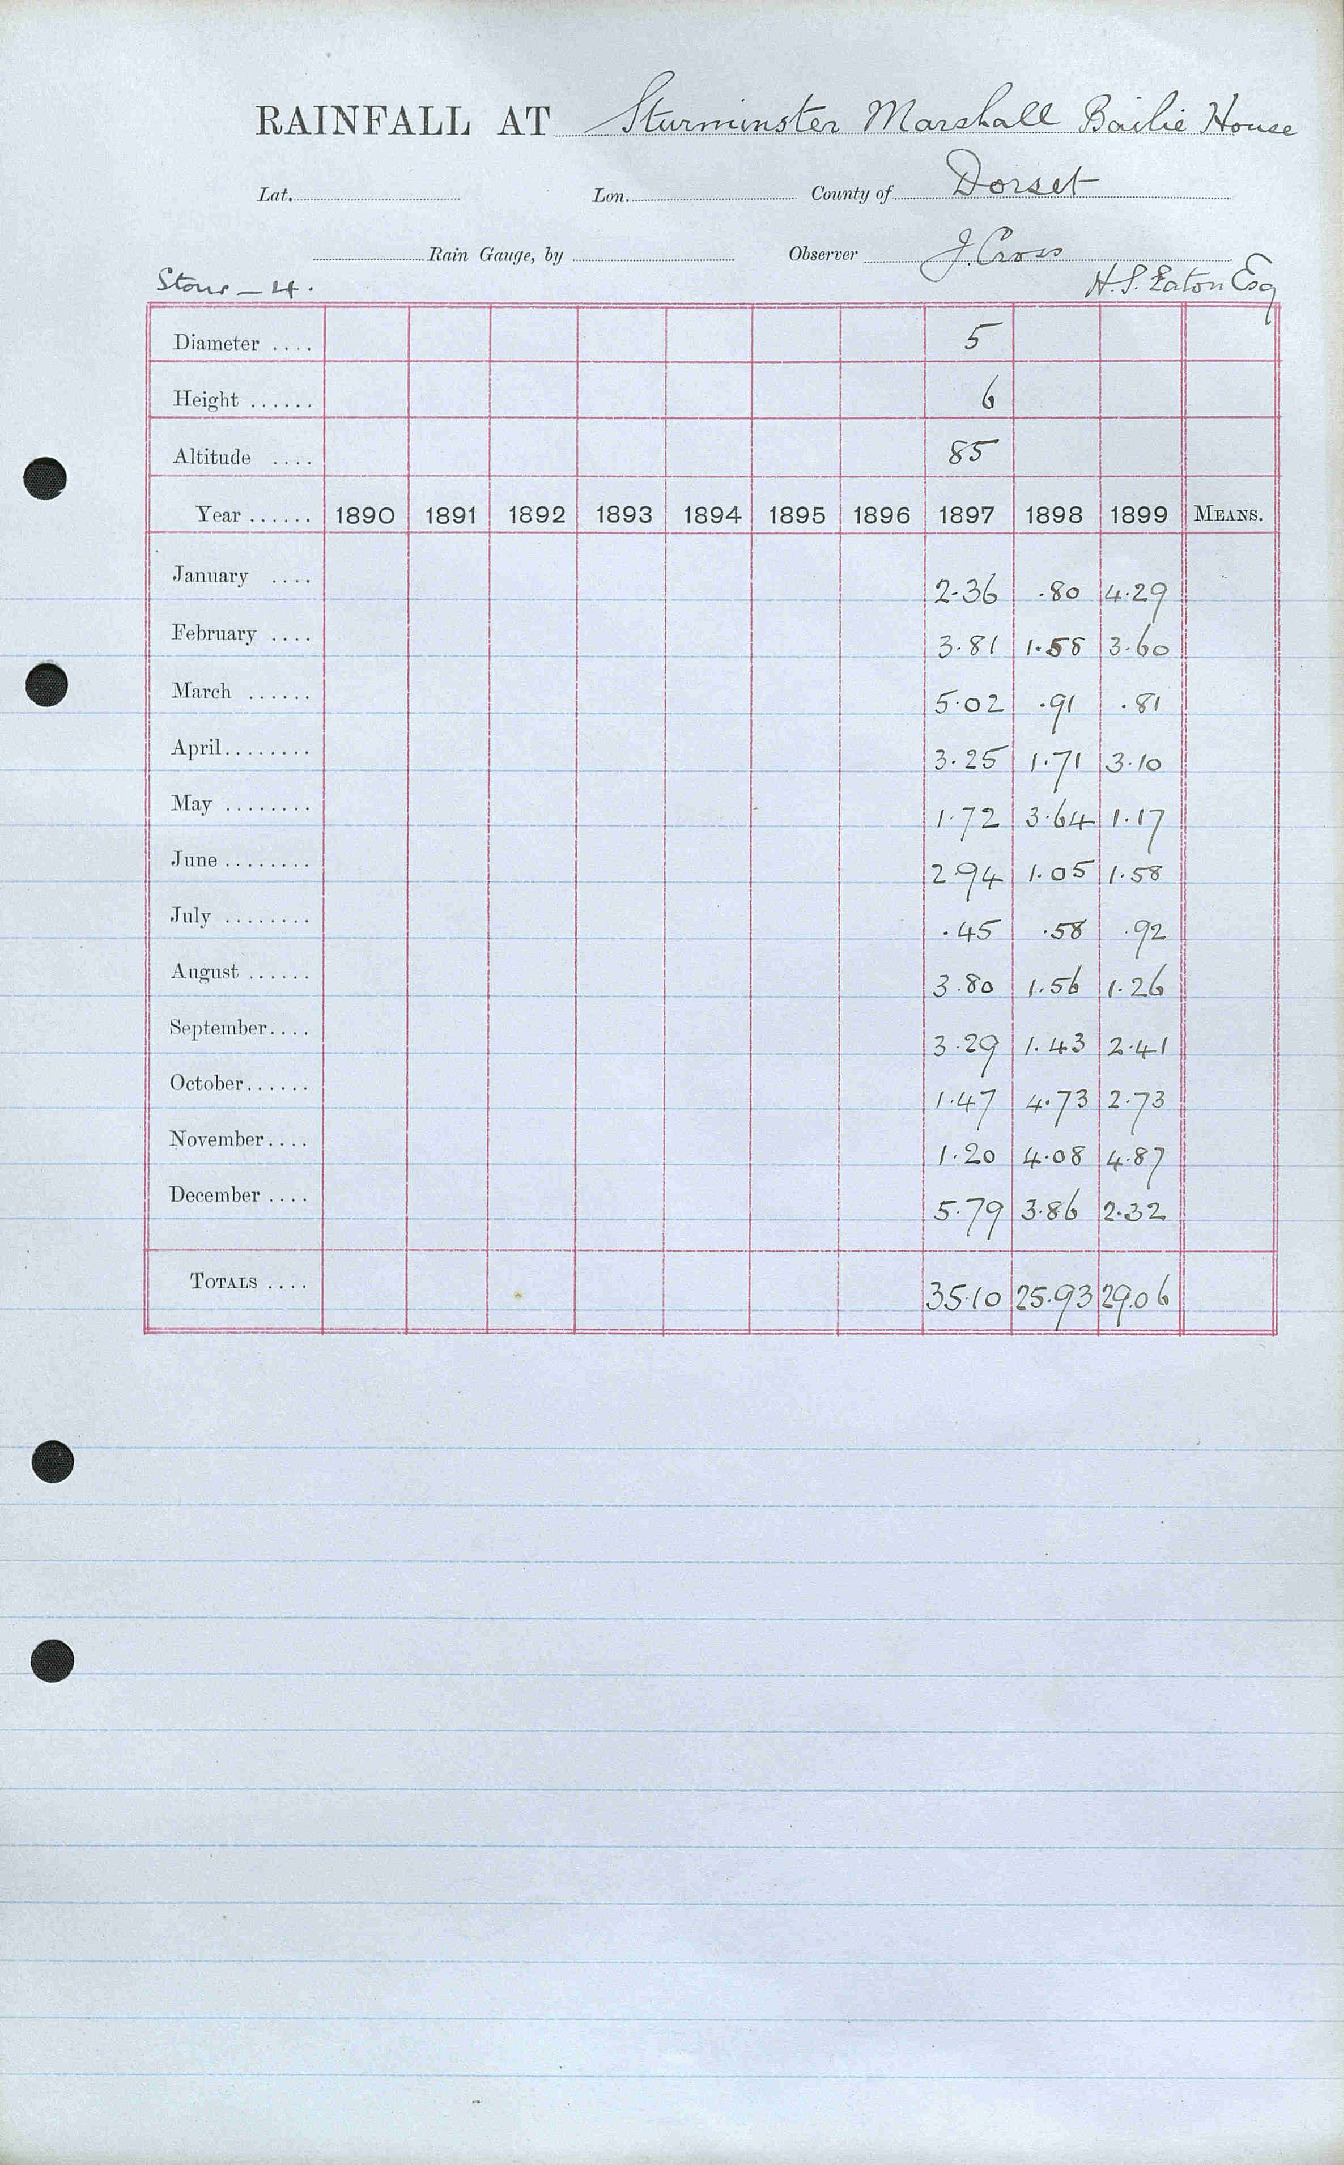 RAINFALL AT Sturminster Marshall Bailie House
Lat. Lon. County of Dorset
Rain Gauge, by Observer J. Cross
Stour — 4. H. S. Eaton Esq
Diameter .... 5
Height ...... 6
Altitude .... 85
Year ...... 1890 1891 1892 1893 1894 1895 1896 1897 1898 1899 MEANS.
January .... 2.36 .80 4.29
February .... 3.81 1.58 3.60
March ...... 5.02 .91 .81
April........ 3.25 1.71 3.10
May ........ 1.72 3.64 1.17
June ........ 2.94 1.05 1.58
July ........ .45 .58 .92
August ...... 3.80 1.56 1.26
September.... 3.29 1.43 2.41
October...... 1.47 4.73 2.73
November.... 1.20 4.08 4.87
December .... 5.79 3.86 2.32
TOTALS .... 35.10 25.93 29.06